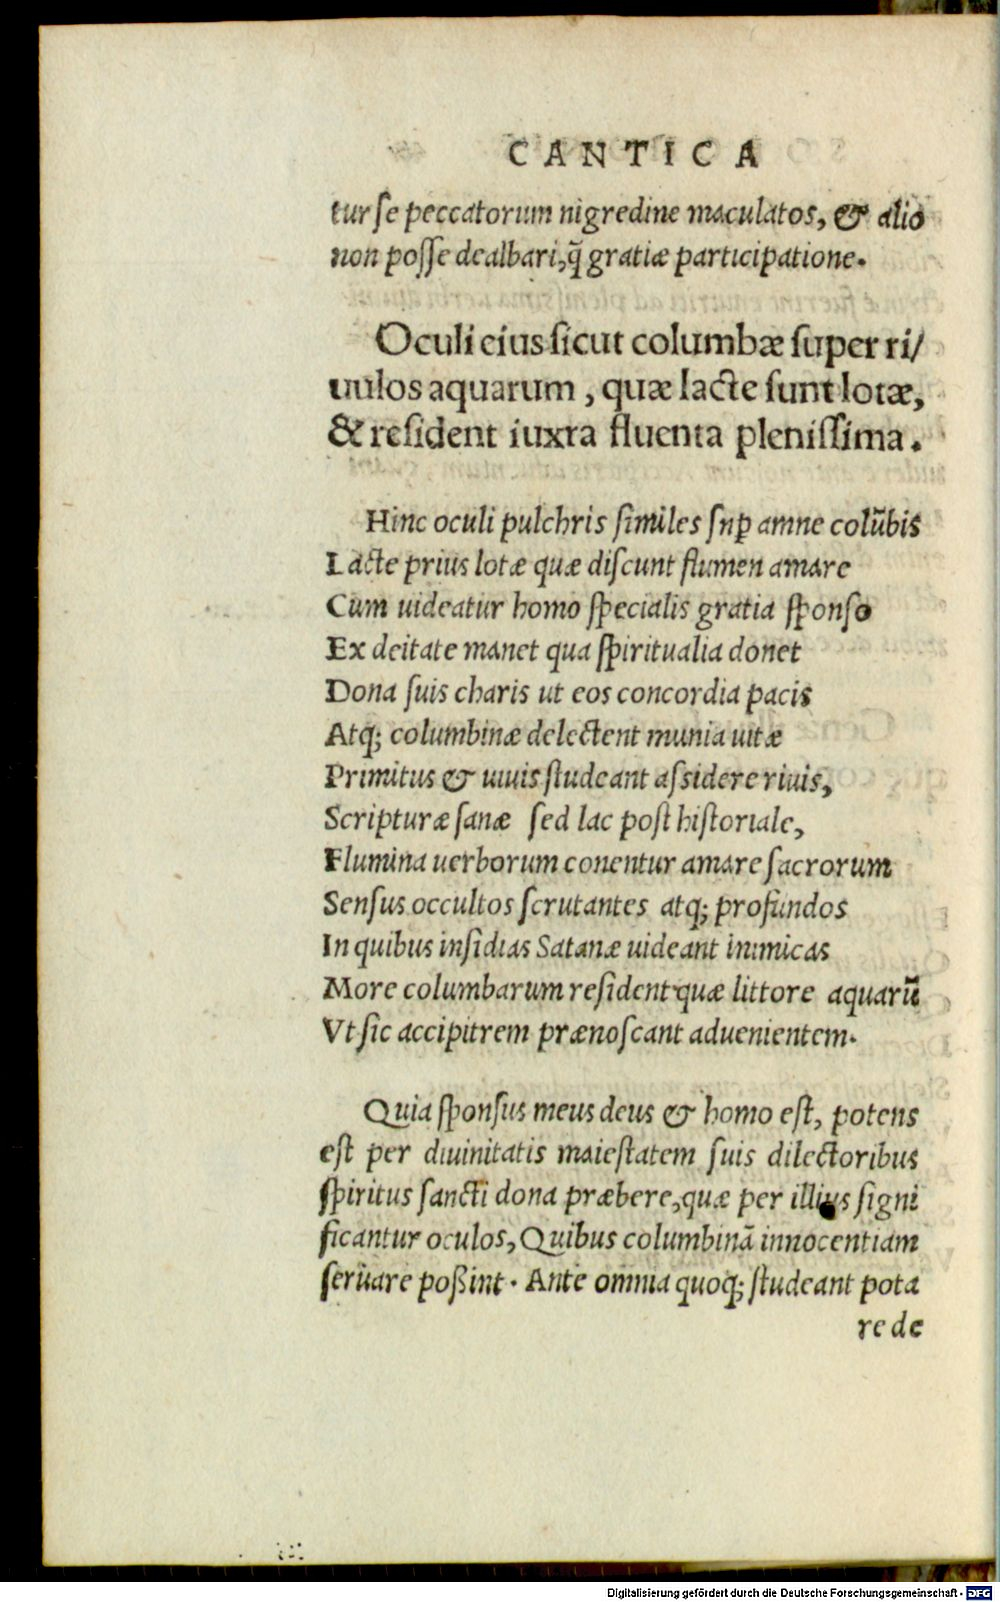 CANTICA
tur se peccatorum nigredine maculatos, & alio
non posse dealbari, q̃ gratiæ participatione.
Oculi eius sicut columbæ super ri/
uulos aquarum, quæ lacte sunt lotæ,
& resident iuxta fluenta plenissima.
Hinc oculi pulchris similes suꝑ amne colũbis
Lacte prius lotæ quæ discunt flumen amare
Cum uideatur homo specialis gratia sponso
Ex deitate manet qua spiritualia donet
Dona suis charis ut eos concordia pacis
Atq; columbinæ delectent munia uitæ
Primitus & uiuis studeant assidere riuis,
Scripturæ sanæ sed lac post historiale,
Flumina uerborum conentur amare sacrorum
Sensus occultos scrutantes atq; profundos
In quibus insidias Satanæ uideant inimicas
More columbarum resident quæ littore aquarũ
Vt sic accipitrem prænoscant aduenientem.
Quia sponsus meus deus & homo est, potens
est per diuinitatis maiestatem suis dilectoribus
spiritus sancti dona præbere, quæ per illius signi
ficantur oculos, Quibus columbinã innocentiam
seruare poßint. Ante omnia quoq; studeant pota
re de
Digitalisierung gefördert durch die Deutsche Forschungsgemeinschaft - DFG